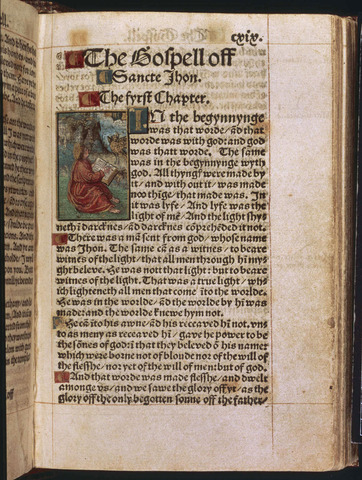 cxix.
The Gospell off
Sancte Jhon.
The fyrst Chapter.
IN the begynnynge
was that worde/ ād that
worde was with god: and god
was thatt worde. The same
was in the begynnynge wyth
god. All thyngs were made by
it/ and with out it/ was made
noo thīge/ that made was. In
it was lyfe/ And lyfe was the
light of mē/ And the light shy͛
neth ī darcknes/ ād darcknes cōprehēded it not.
There was a mā sent from god/ whose name
was Jhon. The same cā as a witnes/ to beare
witnes of the light/ that all men through hī my͛
ght beleve. He was nott that light: but to beare
witnes of the light. That was a true light/ whi͛
ch lighteneth all men that come īto the worlde.
He was in the worlde/ ād the worlde by hī was
made: and the worlde knewe hym not.
He cā īto his awne/ ād his receaved hī not. vns
to as meny as receaved hī/ gave he power to be
the sōnes of god: ī that they beleved ō his name:
which were borne not of bloude nor of the will of
the flesshe/ nor yet of the will of men: but of god.
And that worde was made flesshe/ and dwelt
amonge vs/ and we sawe the glory off yt/ as the
glory off the only begotten sonne off the father/